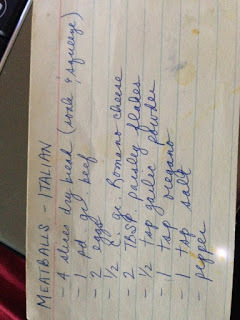 MEATBALLS - ITALIAN
- 4 slices dry bread (soak & squeeze)
- 1 pd gr beef
- 2 eggs
- ½ c. gr. Romano cheese
- 2 TBSP parsley flakes
- ½ tsp garlic powder
- 1 tsp oregano
- 1 tsp salt
- pepper